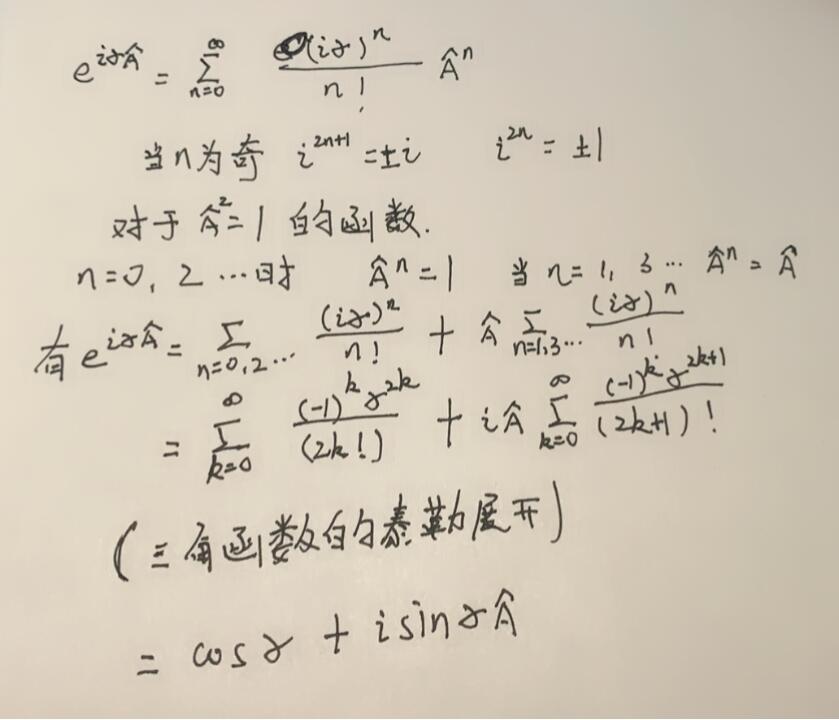 e^{iγÂ} = \sum_{n=0}^{∞} \frac{(iγ)^n}{n!} Â^n
当n为奇 i^{2n+1} = ±i i^{2n} = ±1
对于 Â² = 1 的函数.
n=0, 2 … 时 Â^n = 1 当 n = 1, 3 … Â^n = Â
有 e^{iγÂ} = \sum_{n=0,2…} \frac{(iγ)^n}{n!} + Â \sum_{n=1,3…} \frac{(iγ)^n}{n!}
= \sum_{k=0}^{∞} \frac{(-1)^k γ^{2k}}{(2k!)} + iÂ \sum_{k=0}^{∞} \frac{(-1)^k γ^{2k+1}}{(2k+1)!}
(三角函数的泰勒展开)
= cosγ + i sinγÂ